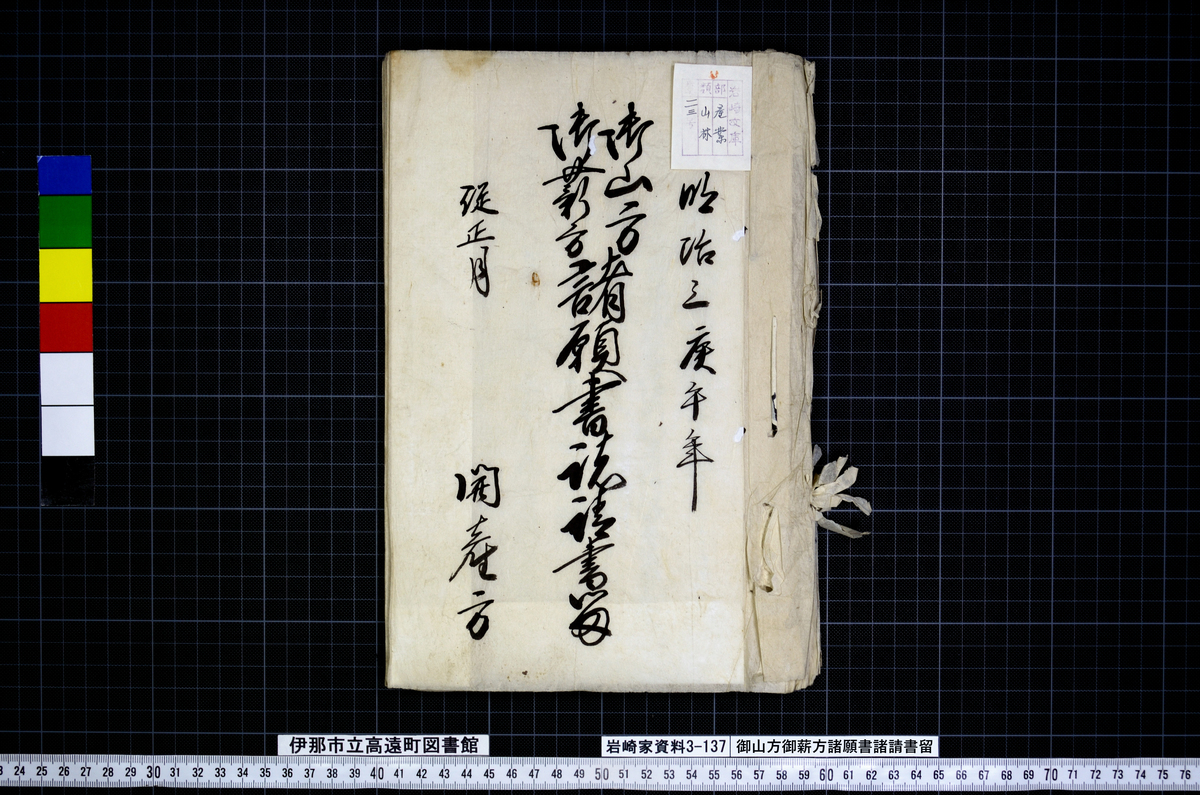 岩崎文庫
部 産業
類 山林
二三
明治三庚午年
御山方
御薪方
諸願書諸請書留
従正月
開産方
伊那市立高遠町図書館
岩崎家資料3-137
御山方御薪方諸願書諸請書留
24 25 26 27 28 29 30 31 32 33 34 35 36 37 38 39 40 41 42 43 44 45 46 47 48 49 50 51 52 53 54 55 56 57 58 59 60 61 62 63 64 65 66 67 68 69 70 71 72 73 74 75 76